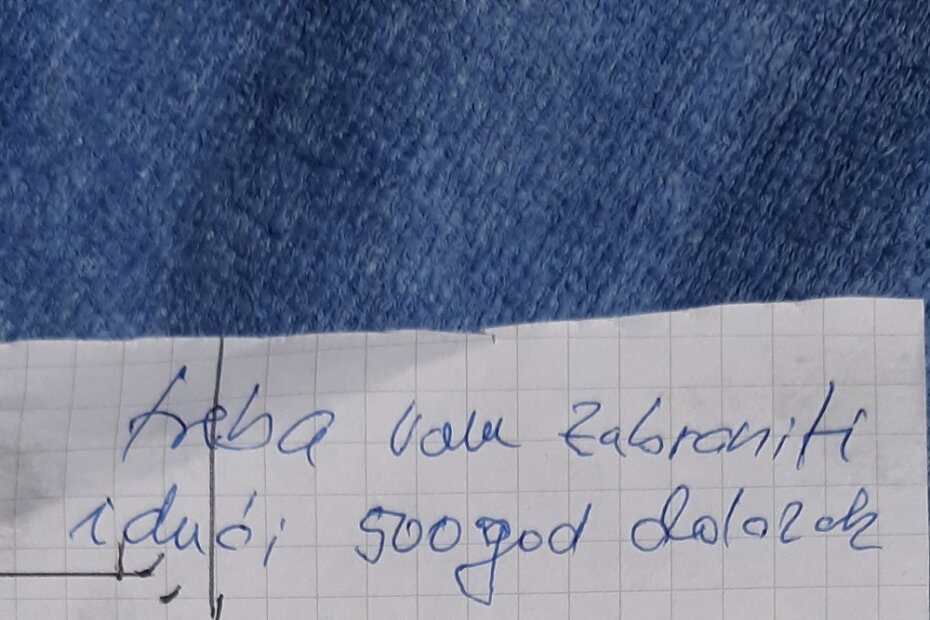 treba vam zabraniti
idući 500 god dolazak